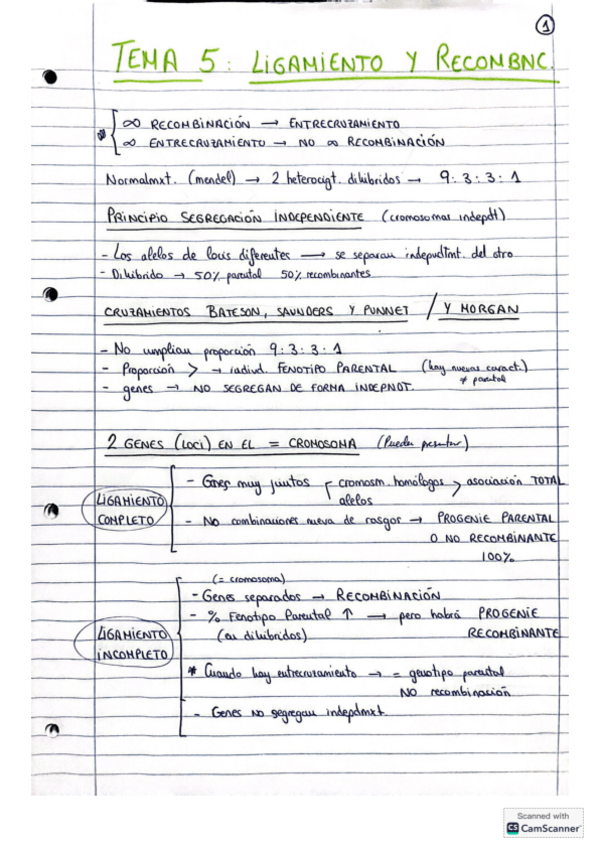 1
TEMA 5: LIGAMIENTO Y RECOMBNC.
* ∞ RECOMBINACIÓN → ENTRECRUZAMIENTO
∞ ENTRECRUZAMIENTO → NO ∞ RECOMBINACIÓN
Normalmxt. (mendel) → 2 heterocigt. dihibridos → 9:3:3:1
PRINCIPIO SEGREGACIÓN INDEPENDIENTE (cromosomas indepdt)
- Los alelos de locis diferentes → se separan indepndtmt. del otro
- Dihibrido → 50% parental 50% recombinantes
CRUZAMIENTOS BATESON, SAUNDERS Y PUNNET / Y MORGAN
- No umplian proporción 9:3:3:1
- Proporción > → individ. FENOTIPO PARENTAL (hay nuevas caract.)
≠ parental
- genes → NO SEGREGAN DE FORMA INDEPNDT.
2 GENES (loci) EN EL = CROMOSOMA (Pueden presentar)
LIGAMIENTO COMPLETO
- Genes muy juntos cromosm. homólogos > asociación TOTAL
alelos
- No combinaciones nueva de rasgos → PROGENIE PARENTAL
O NO RECOMBINANTE
100%
LIGAMIENTO INCOMPLETO
(= cromosoma)
- Genes separados → RECOMBINACIÓN
- % Fenotipo Parental ↑ → pero habrá PROGENIE
(en dihibridos) RECOMBINANTE
* Cuando hay entrecruzamiento → = genotipo parental
NO recombinación
- Genes NO segregan indepdmxt.
Scanned with
CS CamScanner